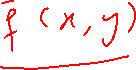 f (x, y)